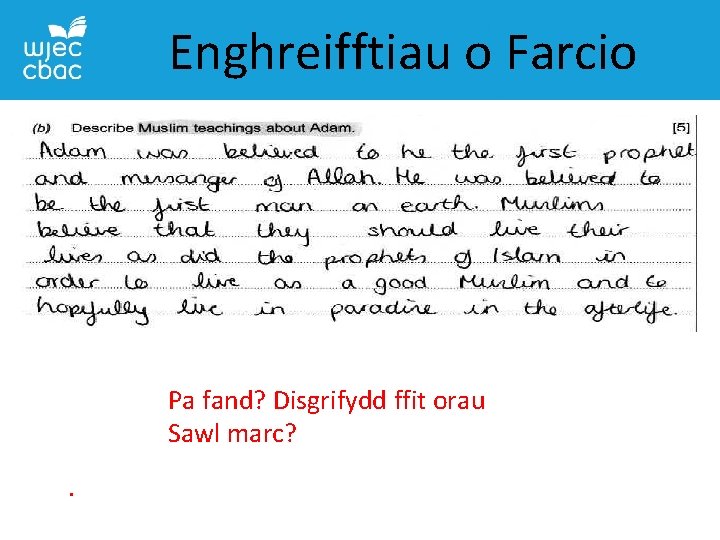 wjec
cbac
Enghreifftiau o Farcio
(b) Describe Muslim teachings about Adam. [5]
Adam was believed to be the first prophet
and mersanger of Allah. He was believed to
be the first man on earth. Muslims
believe that they should live their
lives as did the prophets of Islam in
order to live as a good Muslim and to
hopefully live in paradise in the afterlife.
Pa fand? Disgrifydd ffit orau
Sawl marc?
.